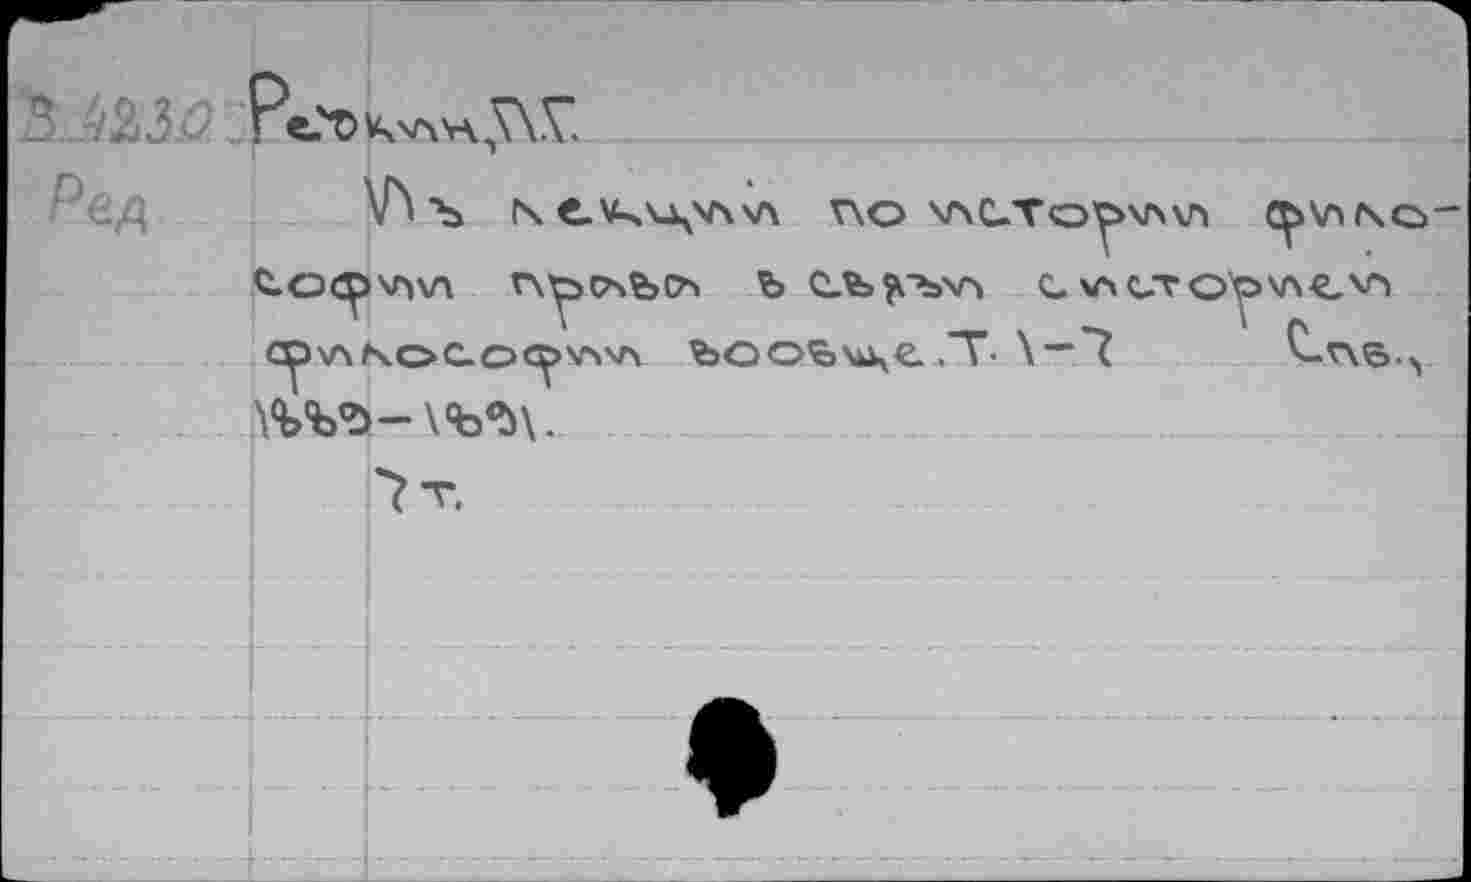 В 4230 Редкин, П.Г.
Ред Из лекций по истории фило-
софии права в связи с историей
философии вообще. Т. 1-7 Спб.,
1889-1891.
7 т.